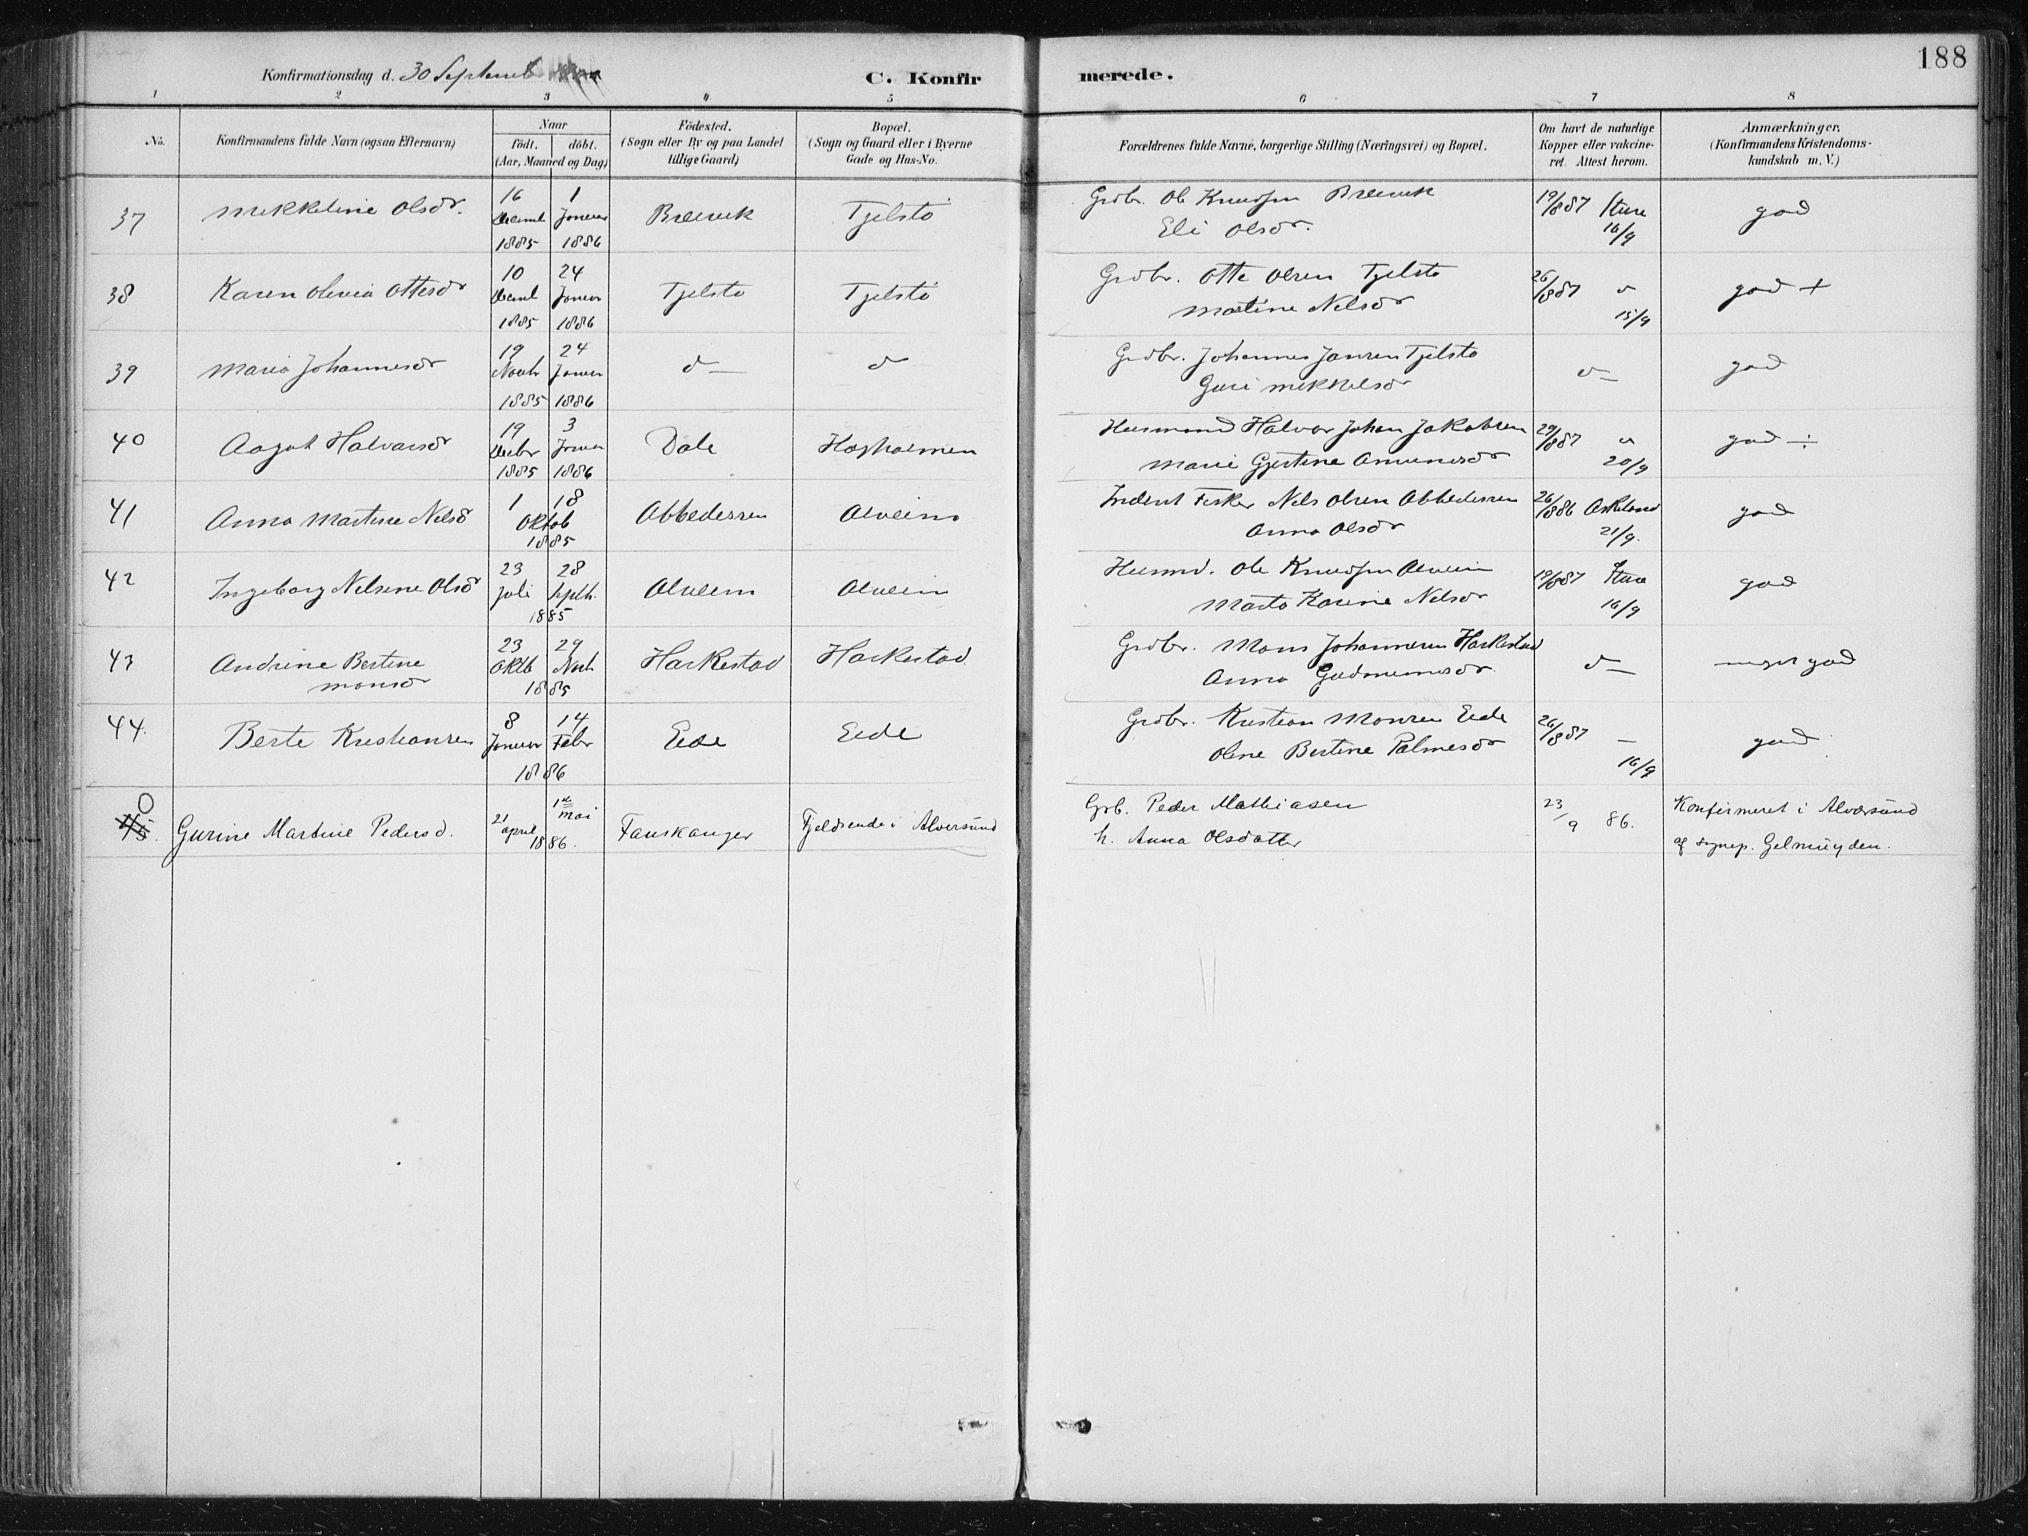 188
Konfirmationsdag d. 30 Septemb
C. Konfirmerede.
1 2 3 4 5 6 7 8
No.
Konfirmandens fulde Navn (ogsaa Efternavn)
Naar
födt. döbt.
(Aar, Maaned og Dag)
Födested.
(Sogn eller By og paa Landet
tillige Gaard)
Bopæl.
(Sogn og Gaard eller i Byerne
Gade og Hus-No.
Forældrenes fulde Navne, borgerlige Stilling (Næringsvei) og Bopæl.
Om havt de naturlige
Kopper eller vakcine-
ret. Attest herom.
Anmærkninger.
(Konfirmandens Kristendoms-
kundskab m. V.)
37 Mikkeline Olsdr. 16 Decemb 1885 1 Januar 1886 Brævik Tjelstö Grdbr. Ole Knudsen Brævik
Eli Olsdr. 19/8 87 Sture 16/9 god
38 Karen Olivia Ottesdr 10 Decemb 1885 24 Januar 1886 Tjelsto Tjelstö Grdbr. Otte Olsen Tjelsto
Martine Nelsdr 26/8 87 15/9 god +
39 Maria Johannesdr 19 Novbr 1885 24 Januar 1886 Grdbr. Johannes Jansen Tjelsto
Guri Mikkelsdr god
40 Aagot Halvarsdr 19 Decbr 1885 3 Januar 1886 Dale Husmand Halvor Johan Jakobsen
Marie Gjertine Amundsdr 29/8 87 20/9 god ÷
41 Anna Martine Nelsd 1 18 Oktob 1885 Abbedissen Alveim Indent Fisker Nels Olsen Abbedissen
Anna Olsdr 26/8 86 Askeland 21/9. god
42 Ingeborg Nelsine Olsd 23 Juli 28 Septb. 1885 Alveim Alveim Husmd. Ole Knudsen Alveim
Marta Karine Nelsdr 19/8 87 Sture 16/9 god
43 Andrine Bertine
Monsdr 23 Oktb 29 Novb. 1885 Harkestad Harkestad Grdbr. Mons Johannesen Harkestad
Anna Gudmunsdr. meget god
44. Berte Kristiansen 8 Januar 14 Febr 1886 Eide Eide Grdbr. Kristian Monsen Eide
Oline Bertine Palmesdr 26/8 87 — 16/9 god
0
45. Gurine Martine Pedersd. 21 april 1ste mai 1886. Fauskanger Fjeldsende i Alversund Grb. Peder Mathiasen
h. Anna Olsdatter 23/9 86. Konfirmeret i Alversund
af sognep. Gelmüyden.